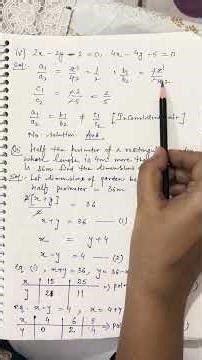 (iv) 2x - 2y - 2 = 0, 4x - 4y - 5 = 0
Sol. a₁/a₂ = 2/4 = 1/2 , b₁/b₂ = -2/-4
c₁/c₂ = -2/-5 = 2/5
a₁/a₂ = b₁/b₂ ≠ c₁/c₂ [Inconsistent]
No solution Ans
Q5 Half the perimeter of a rectangular
whose length is 4m more than
is 36m find the dimensions
Sol. Let dimensions of garden be
Half perimeter = 36m
= 36
x+y = 36 — (1)
x = y+4
x-y = 4 — (2)
eq. (1), x+y = 36, y = 36-x
x 15 25
y 21 11
eq. x-y = 4, x = 4+y
x 4 6
y 0 2